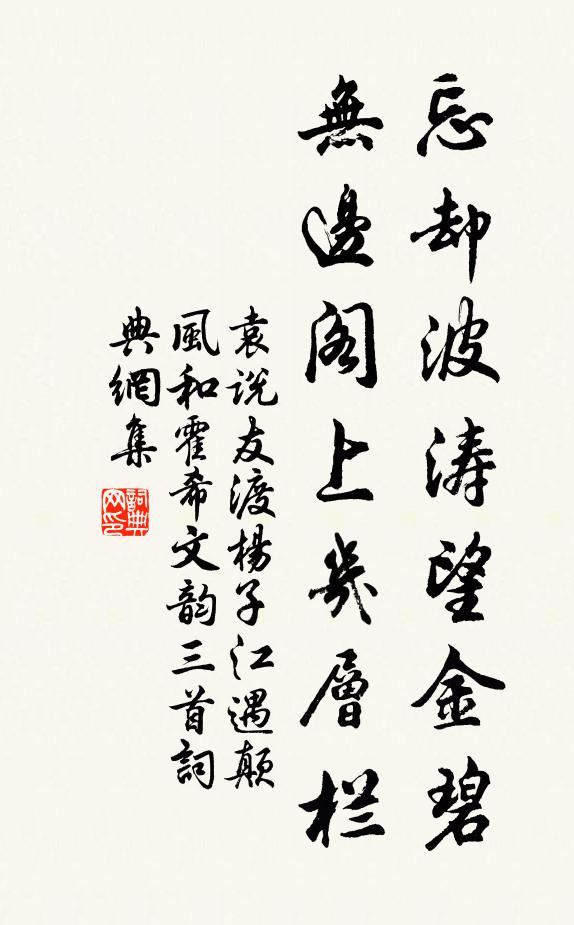 忘却波涛望金碧
無邊阁上幾層栏
袁说友渡楊子江遇颠
風和霍希文韵三首詞
典網集
詞典網印